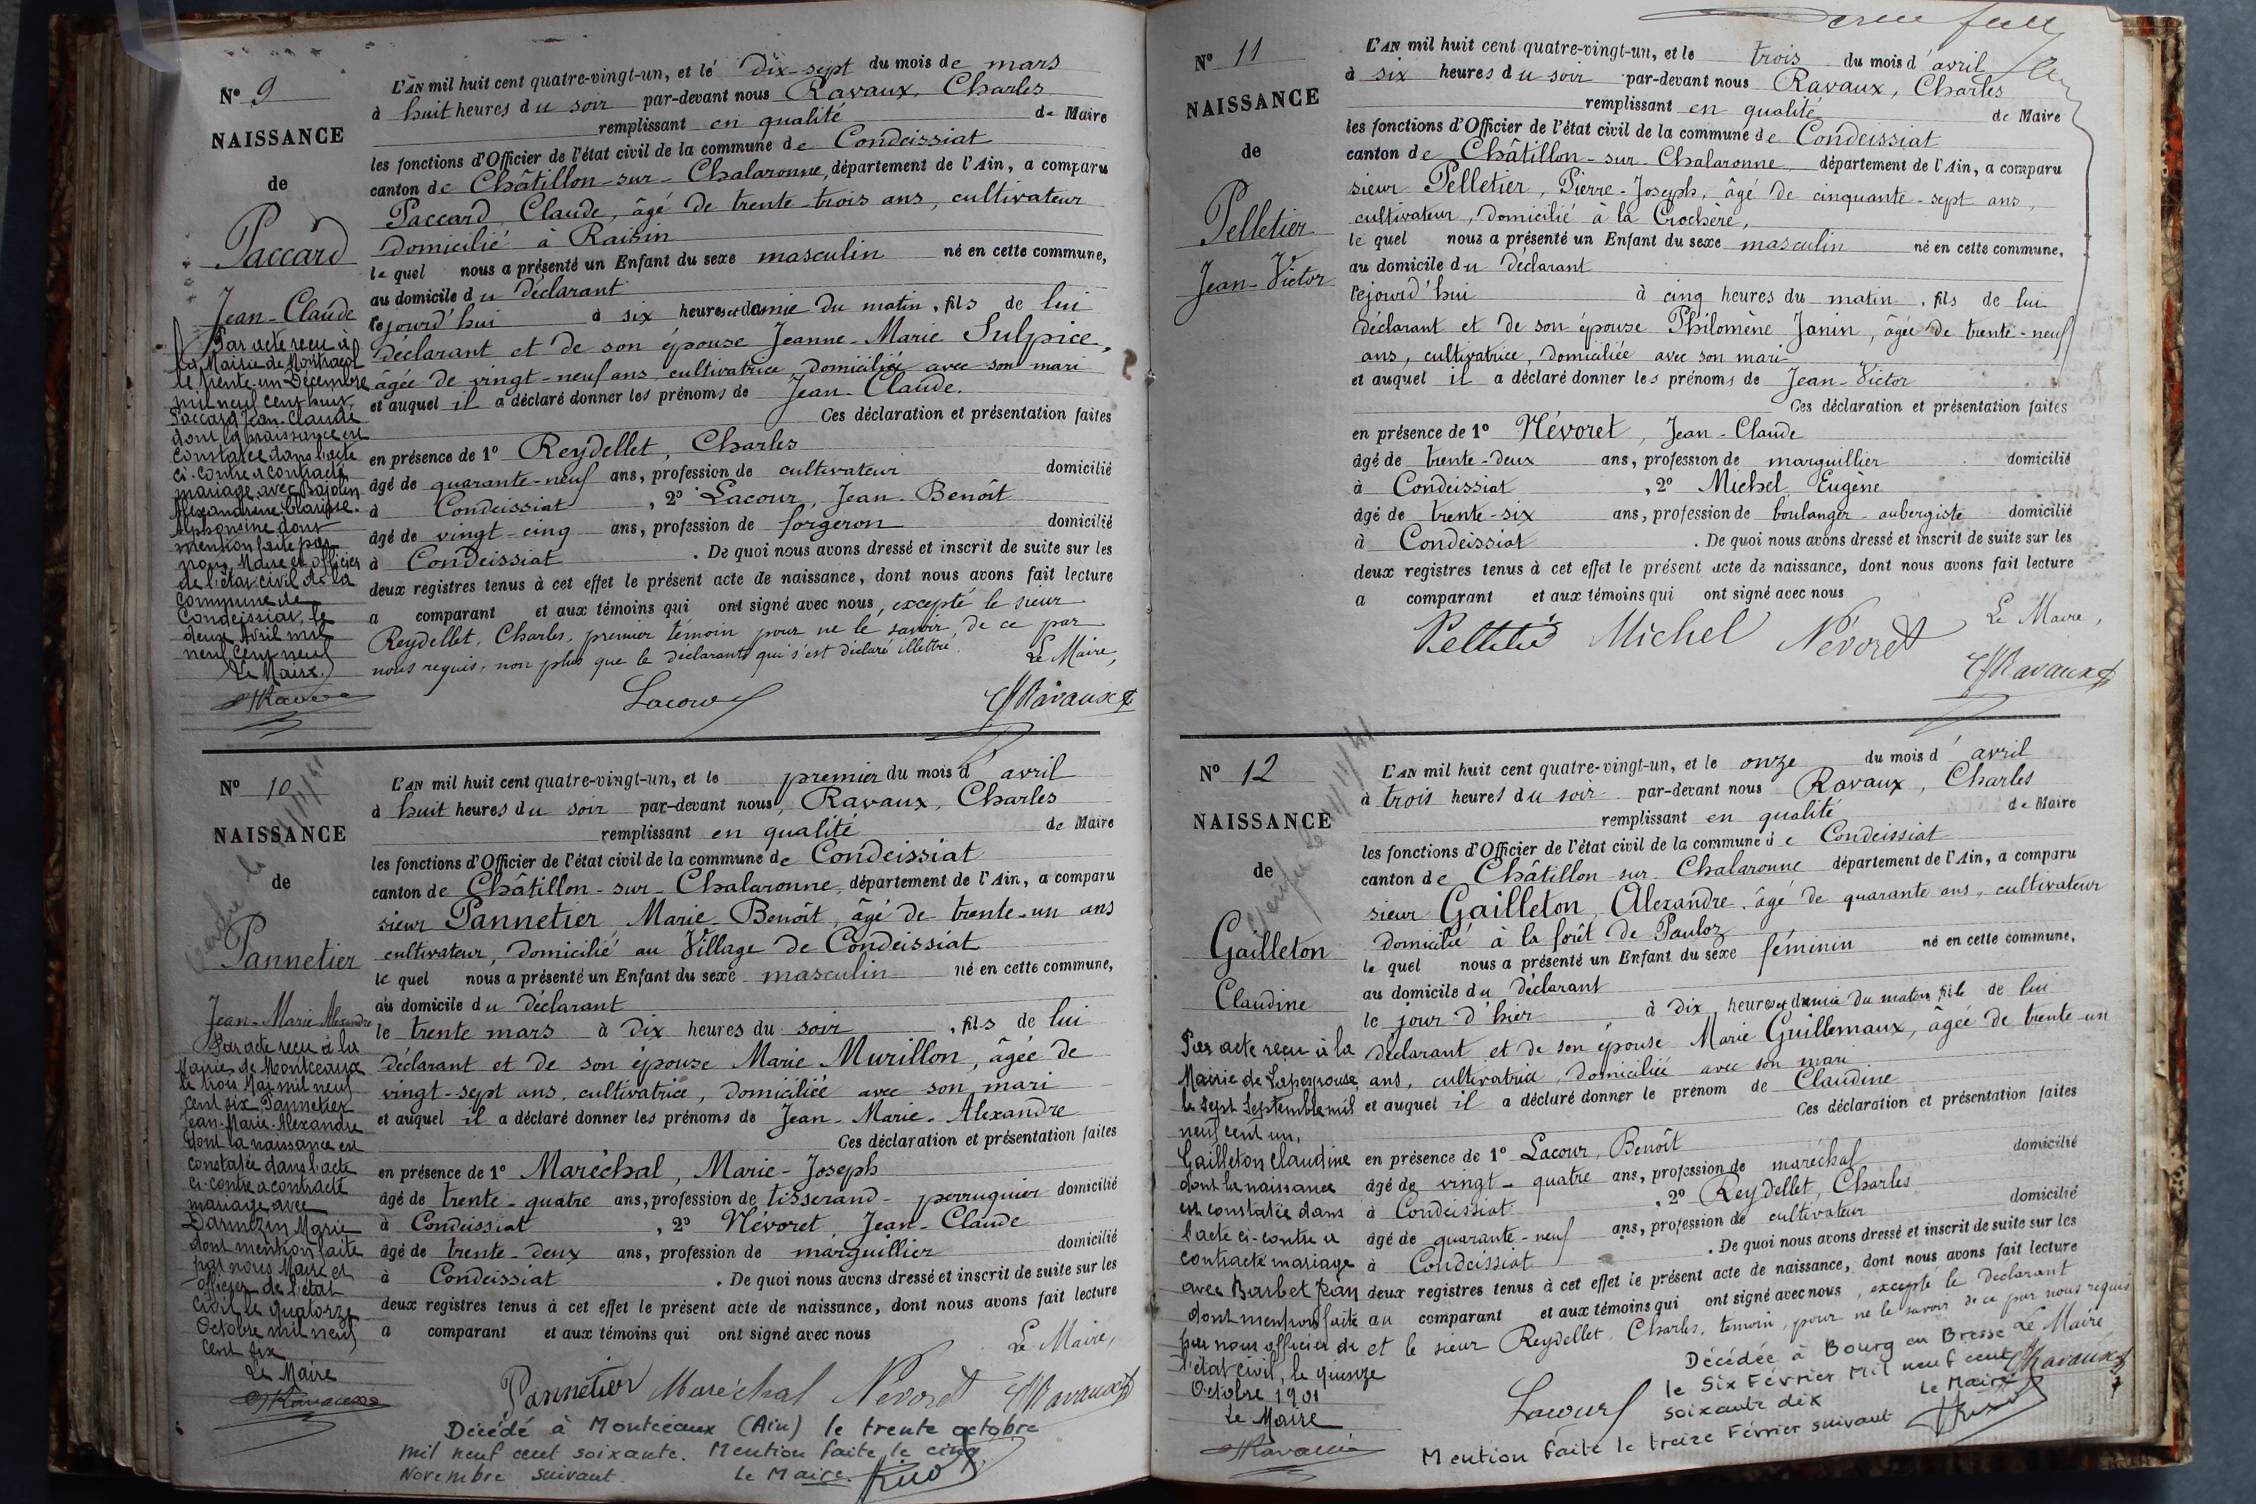 Nº 9
NAISSANCE
de
Paccard
Jean-Claude
Par acte reçu à
la Mairie de Montracol
le trente-un Décembre
mil neuf cent huit,
Paccard Jean-Claude
dont la naissance est
constatée dans l'acte
ci-contre a contracté
mariage avec Bajolin
Alexandrine Clarisse
Alphonsine dont
mention faite par
nous, Maire et officier
de l'état civil de la
commune de
Condeissiat, le
deux Avril mil
neuf cent neuf
Le Maire
Ravaux
L'AN mil huit cent quatre-vingt-un, et le dix-sept du mois de mars
à huit heures du soir par-devant nous Ravaux, Charles
remplissant en qualité de Maire
les fonctions d'Officier de l'état civil de la commune de Condeissiat
canton de Châtillon-sur-Chalaronne, département de l'Ain, a comparu
Paccard, Claude, âgé de trente-trois ans, cultivateur
domicilié à Raisin
le quel nous a présenté un Enfant du sexe masculin né en cette commune,
au domicile du déclarant
cejourd'hui à six heures et demie du matin, fils de lui
déclarant et de son épouse Jeanne-Marie Sulpice,
âgée de vingt-neuf ans, cultivatrice, domiciliée avec son mari
et auquel il a déclaré donner les prénoms de Jean-Claude.
Ces déclaration et présentation faites
en présence de 1º Reydellet, Charles
âgé de quarante-neuf ans, profession de cultivateur domicilié
à Condeissiat, 2º Lacour, Jean-Benoît
âgé de vingt-cinq ans, profession de forgeron domicilié
à Condeissiat. De quoi nous avons dressé et inscrit de suite sur les
deux registres tenus à cet effet le présent acte de naissance, dont nous avons fait lecture
a comparant et aux témoins qui ont signé avec nous, excepté le sieur
Reydellet, Charles, premier témoin pour ne le savoir, de ce par
nous requis, non plus que le déclarant qui s'est déclaré illettré.
Le Maire,
Lacour ChRavaux
Nº 10
NAISSANCE
de
Pannetier
Jean-Marie Alexandre
Par acte reçu à la
Mairie de Montceaux
le trois Mai mil neuf
cent six, Pannetier
Jean-Marie-Alexandre
dont la naissance est
constatée dans l'acte
ci-contre a contracté
mariage avec
Dannezin Marie
dont mention faite
par nous Maire et
officier de l'état
civil le quatorze
Octobre mil neuf
cent six
Le Maire
Ravaux
L'AN mil huit cent quatre-vingt-un, et le premier du mois d'avril
à huit heures du soir par-devant nous, Ravaux, Charles
remplissant en qualité de Maire
les fonctions d'Officier de l'état civil de la commune de Condeissiat
canton de Châtillon-sur-Chalaronne, département de l'Ain, a comparu
sieur Pannetier Marie Benoît, âgé de trente-un ans
cultivateur, domicilié au Village de Condeissiat
le quel nous a présenté un Enfant du sexe masculin né en cette commune,
au domicile du déclarant
le trente mars à dix heures du soir, fils de lui
déclarant et de son épouse Marie Murillon, âgée de
vingt-sept ans, cultivatrice, domiciliée avec son mari
et auquel il a déclaré donner les prénoms de Jean-Marie-Alexandre
Ces déclaration et présentation faites
en présence de 1º Maréchal, Marie-Joseph
âgé de trente-quatre ans, profession de tisserand-perruquier domicilié
à Condeissiat, 2º Névoret Jean-Claude
âgé de trente-deux ans, profession de marguillier domicilié
à Condeissiat. De quoi nous avons dressé et inscrit de suite sur les
deux registres tenus à cet effet le présent acte de naissance, dont nous avons fait lecture
a comparant et aux témoins qui ont signé avec nous
Le Maire,
Pannetier Maréchal Névoret ChRavaux
Décédé à Montceaux (Ain) le trente octobre
mil neuf cent soixante. Mention faite le cinq
Novembre suivant. Le Maire.
Nº 11
NAISSANCE
de
Pelletier
Jean-Victor
L'AN mil huit cent quatre-vingt-un, et le trois du mois d'avril
à six heures du soir par-devant nous Ravaux, Charles
remplissant en qualité de Maire
les fonctions d'Officier de l'état civil de la commune de Condeissiat
canton de Châtillon-sur-Chalaronne, département de l'Ain, a comparu
sieur Pelletier, Pierre-Joseph, âgé de cinquante-sept ans,
cultivateur, domicilié à la Crochère,
le quel nous a présenté un Enfant du sexe masculin né en cette commune,
au domicile du déclarant
cejourd'hui à cinq heures du matin, fils de lui
déclarant et de son épouse Philomène Janin, âgée de trente-neuf
ans, cultivatrice, domiciliée avec son mari
et auquel il a déclaré donner les prénoms de Jean-Victor
Ces déclaration et présentation faites
en présence de 1º Névoret, Jean-Claude
âgé de trente-deux ans, profession de marguillier domicilié
à Condeissiat, 2º Michel Eugène
âgé de trente-six ans, profession de boulanger-aubergiste domicilié
à Condeissiat. De quoi nous avons dressé et inscrit de suite sur les
deux registres tenus à cet effet le présent acte de naissance, dont nous avons fait lecture
a comparant et aux témoins qui ont signé avec nous
Le Maire,
Pelletier Michel Névoret
ChRavaux
Nº 12
NAISSANCE
de
Gailleton
Claudine
Par acte reçu à la
Mairie de Lapeyrouse
le sept Septembre mil
neuf cent un,
Gailleton Claudine
dont la naissance
est constatée dans
l'acte ci-contre a
contracté mariage
avec Barbet Jean
dont mention faite
par nous officier de
l'état civil, le quinze
Octobre 1901
Le Maire
Ravaux
L'AN mil huit cent quatre-vingt-un, et le onze du mois d'avril
à trois heures du soir par-devant nous Ravaux, Charles
remplissant en qualité de Maire
les fonctions d'Officier de l'état civil de la commune de Condeissiat
canton de Châtillon-sur-Chalaronne département de l'Ain, a comparu
sieur Gailleton, Alexandre, âgé de quarante ans, cultivateur
domicilié à la forêt de Pauloz
le quel nous a présenté un Enfant du sexe féminin né en cette commune,
au domicile du déclarant
le jour d'hier à dix heures et demie du matin, fille de lui
déclarant et de son épouse Marie Guillemaux, âgée de trente-un
ans, cultivatrice, domiciliée avec son mari
et auquel il a déclaré donner le prénom de Claudine
Ces déclaration et présentation faites
en présence de 1º Lacour, Benoît domicilié
âgé de vingt-quatre ans, profession de maréchal
à Condeissiat, 2º Reydellet, Charles
âgé de quarante-neuf ans, profession de cultivateur domicilié
à Condeissiat. De quoi nous avons dressé et inscrit de suite sur les
deux registres tenus à cet effet le présent acte de naissance, dont nous avons fait lecture
au comparant et aux témoins qui ont signé avec nous, excepté le déclarant
et le sieur Reydellet, Charles, témoin, pour ne le savoir de ce par nous requis
Le Maire
Lacour ChRavaux
Décédée à Bourg en Bresse
le Six Février Mil neuf cent
soixante dix Le Maire
Mention faite le treize Février suivant